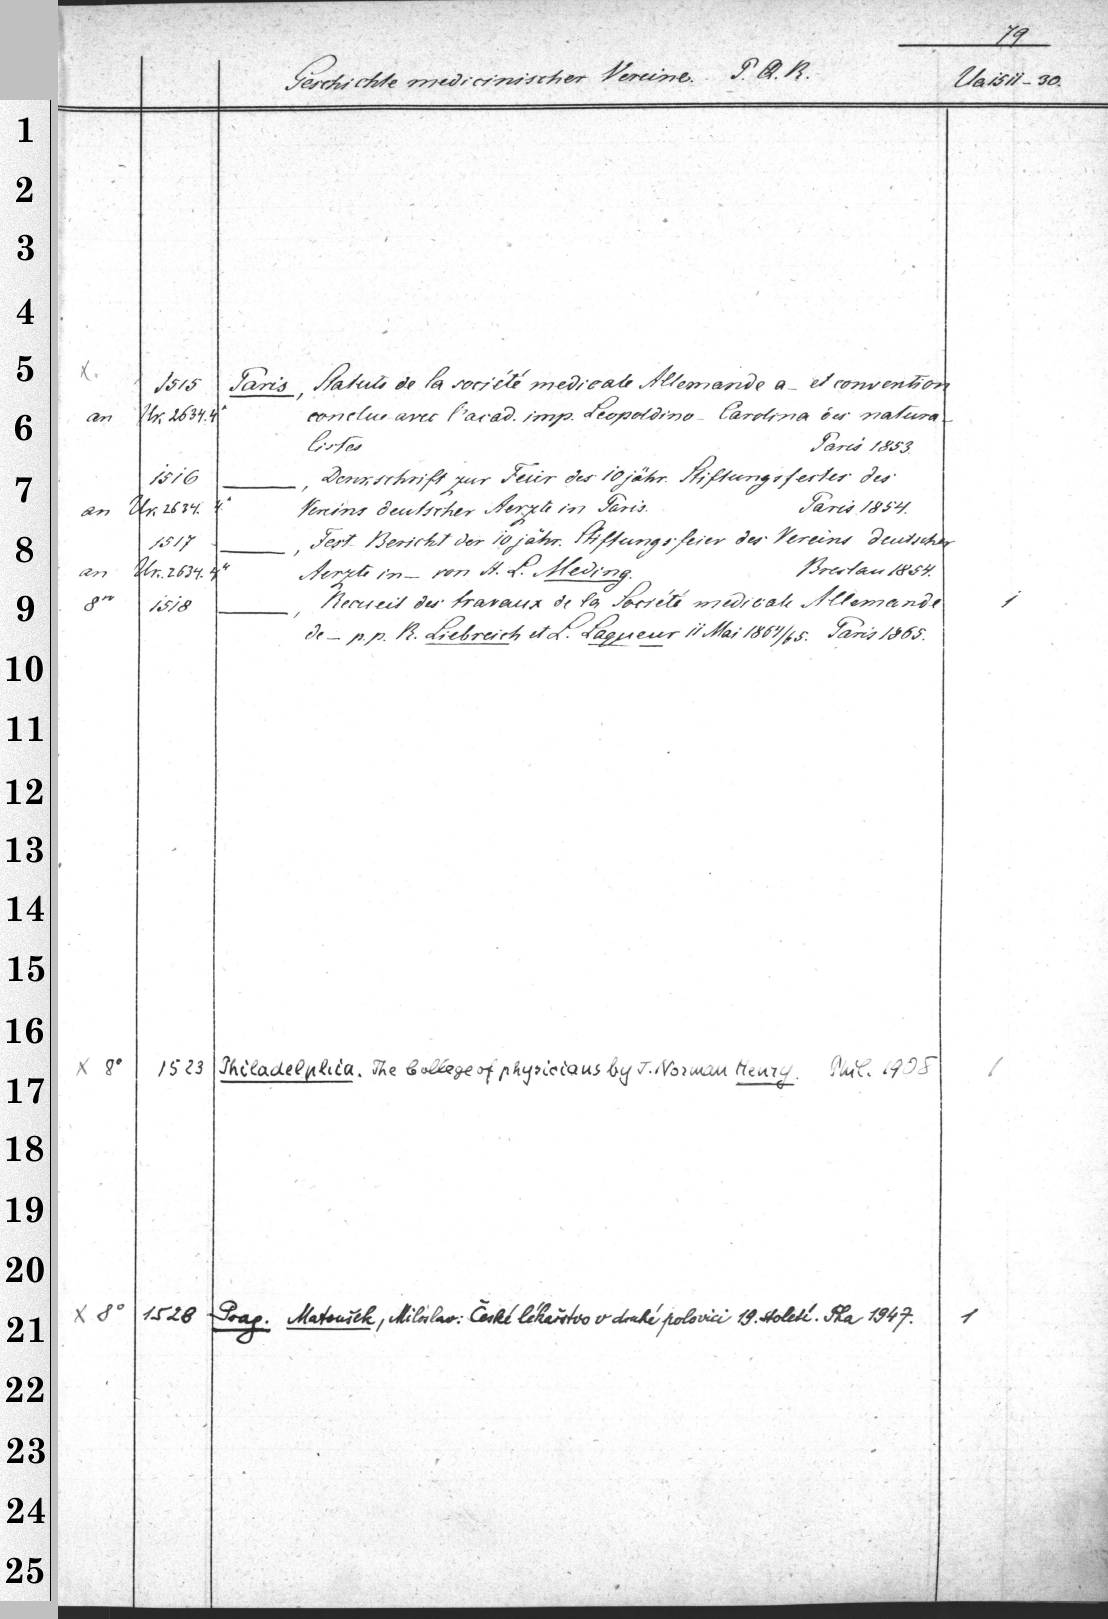 79
Geschichte medicinischer Vereine. P. Q. R. Ua 1511-30.
1
2
3
4
5 X.
1515 Paris, Statuts de la société medicale Allemande a_ et convention
6 an Ur. 2634. 4° conclue avec l'acad. imp. Leopoldino_ Carolina des natura-
listes Paris 1853.
7 1516 ____, Denkschrift zur Feier des 10 jähr. Stiftungsfestes des
an Ur. 2634. 4° Vereins deutscher Aerzte in Paris. Paris 1854.
8 1517 ____, Fest Bericht der 10 jähr. Stiftungsfeier des Vereins deutscher
an Ur. 2634. 4° Aerzte in _ von H. L. Meding. Breslau 1854.
9 8vo 1518 ____, Recueil des travaux de la Société medicale Allemande 1
de _ p.p. R. Liebreich et L. Laqueur 11 Mai 1864/65. Paris 1865.
10
11
12
13
14
15
16
17 X 8° 1523 Philadelphia. The College of physicians by J. Norman Henry. Phil. 1908 1
18
19
20
21 X 8° 1528 Prag. Matoušek, Miloslav: České lékařstvo v druhé polovici 19. století. Pha 1947. 1
22
23
24
25